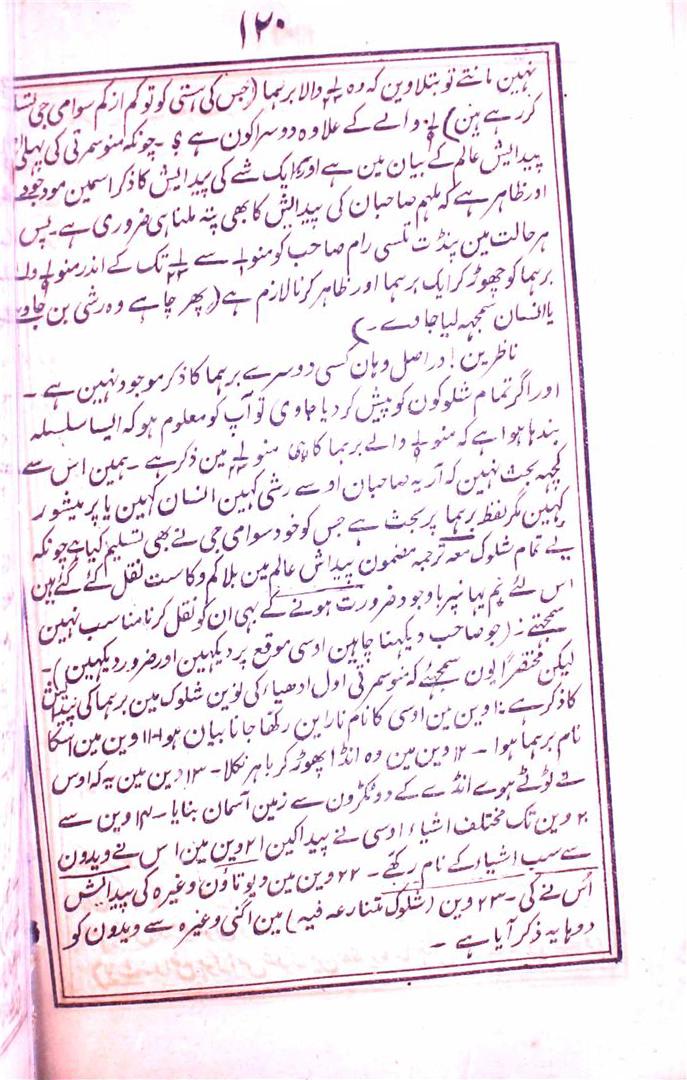 ۱۲۰
نہین مانتے تو بتلاوین کہ وہ ۱/۲۳ والا برہما (جس کی ہستی کو تو کم از کم سوامی جی
کر رہے ہین) ۱/۹ والے کے علاوہ دوسرا کون ہے ؟ ۔ چونکہ منو سمرتی کی پہلی
پیدایش عالم کے بیان مین ہے اور ایک شے کی پیدایش کا ذکر اسمین موجود
اور ظاہر ہے کہ ملہم صاحبان کی پیدایش کا بھی پتہ ملنا ہی ضروری ہے ۔ پس
ہر حالت مین پنڈت تلسی رام صاحب کو منو ۱/۱ سے ۱/۲۳ تک کے اندر منو ۱/۹ والے
برہما کو چھوڑ کر ایک برہما اور ظاہر کرنا لازم ہے (پھر چاہے وہ رشی بن جاوے
یا انسان سمجہہ لیا جاوے ۔)
ناظرین ! دراصل وہان کسی دوسرے برہما کا ذکر موجود نہین ہے ۔
اور اگر تمام شلوکون کو پیش کر دیا جاوی تو آپ کو معلوم ہو کہ ایسا سلسلہ
بندہا ہوا ہے کہ منو ۱/۹ والے برہما کا ہی منو ۱/۲۳ مین ذکر ہے ۔ ہمین اس سے
کچہہ بحث نہین کہ آریہ صاحبان اوسے رشی کہین انسان کہین یا پرمیشور
کہین مگر لفظ برہما پر بحث ہے جس کو خود سوامی جی نے بھی تسلیم کیا ہے چونکہ
یے تمام شلوک معہ ترجمہ مضمون پیدایش عالم مین بلا کم و کاست نقل کئے گئے ہین
اس لئے ہم یہانپر باوجود ضرورت ہونے کے بہی ان کو نقل کرنا مناسب نہین
سمجہتے : (جو صاحب دیکہنا چاہین اوسی موقع پر دیکہین اور ضرور دیکہین) ۔
لیکن مختصراً یون سمجہئے کہ منو سمرتی اول ادھیاء کی نوین شلوک مین برہما کی پیدایش
کا ذکر ہے ۱۰ وین مین اوسی کا نام ناراین رکھا جانا بیان ہوا ۔ ۱۱ وین مین اسکا
نام برہما ہوا ۔ ۱۲ وین مین وہ انڈا پھوڑ کر باہر نکلا ۔ ۱۳ وین مین یہ کہ اوس
نے ٹوٹے ہوے انڈے کے دو ٹکڑون سے زمین آسمان بنایا ۔ ۱۴ وین سے
۲۰ وین تک مختلف اشیاء اوسی نے پیدا کین ۲۱ وین مین اس نے ویدون
سے سب اشیاء کے نام رکھے ۔ ۲۲ وین مین دیوتاؤن وغیرہ کی پیدایش
اُس نے کی ۔ ۲۳ وین (شلوک متنازعہ فیہ) مین اگنی وغیرہ سے ویدون کو
دوہا یہ ذکر آیا ہے ۔